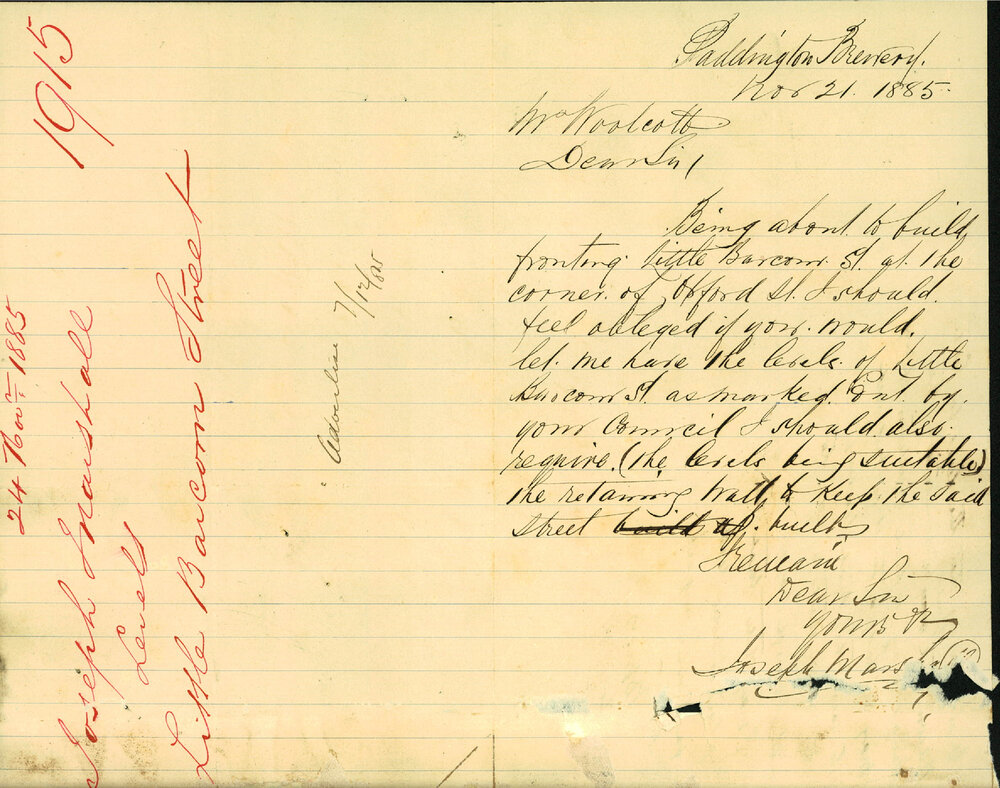 Paddington Brewery.
Nov 21. 1885.
Mr Woolcott
Dear Sir,
Being about to build,
fronting Little Barcom St. at the
corner of Offord St. I should
feel obleged if your would,
let me have the levels of Little
Barcom St. as marked out by
your Council I should also
require. (the levels being suitable)
the retaining wall, to keep the said
street built up. built
I remain
Dear Sir
Yours
Joseph Mars
Advertise 7/12/85
1915
24 Novr 1885
Joseph Marshall
Levels
Little Barcoon Street